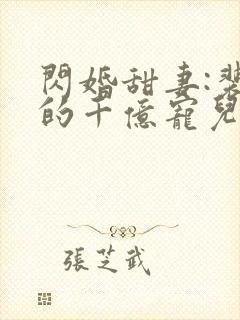 閃婚甜妻:裴
的千億寵兒
張芝武